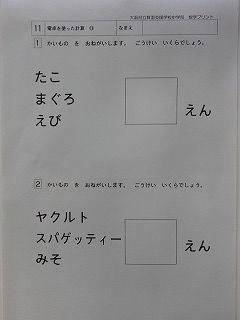 11 電卓を使った計算 なまえ
1 かいもの を おねがいします。 ごうけい いくらでしょう。
たこ
まぐろ
えび
えん
2 かいもの を おねがいします。 ごうけい いくらでしょう。
ヤクルト
スパゲッティー
みそ
えん